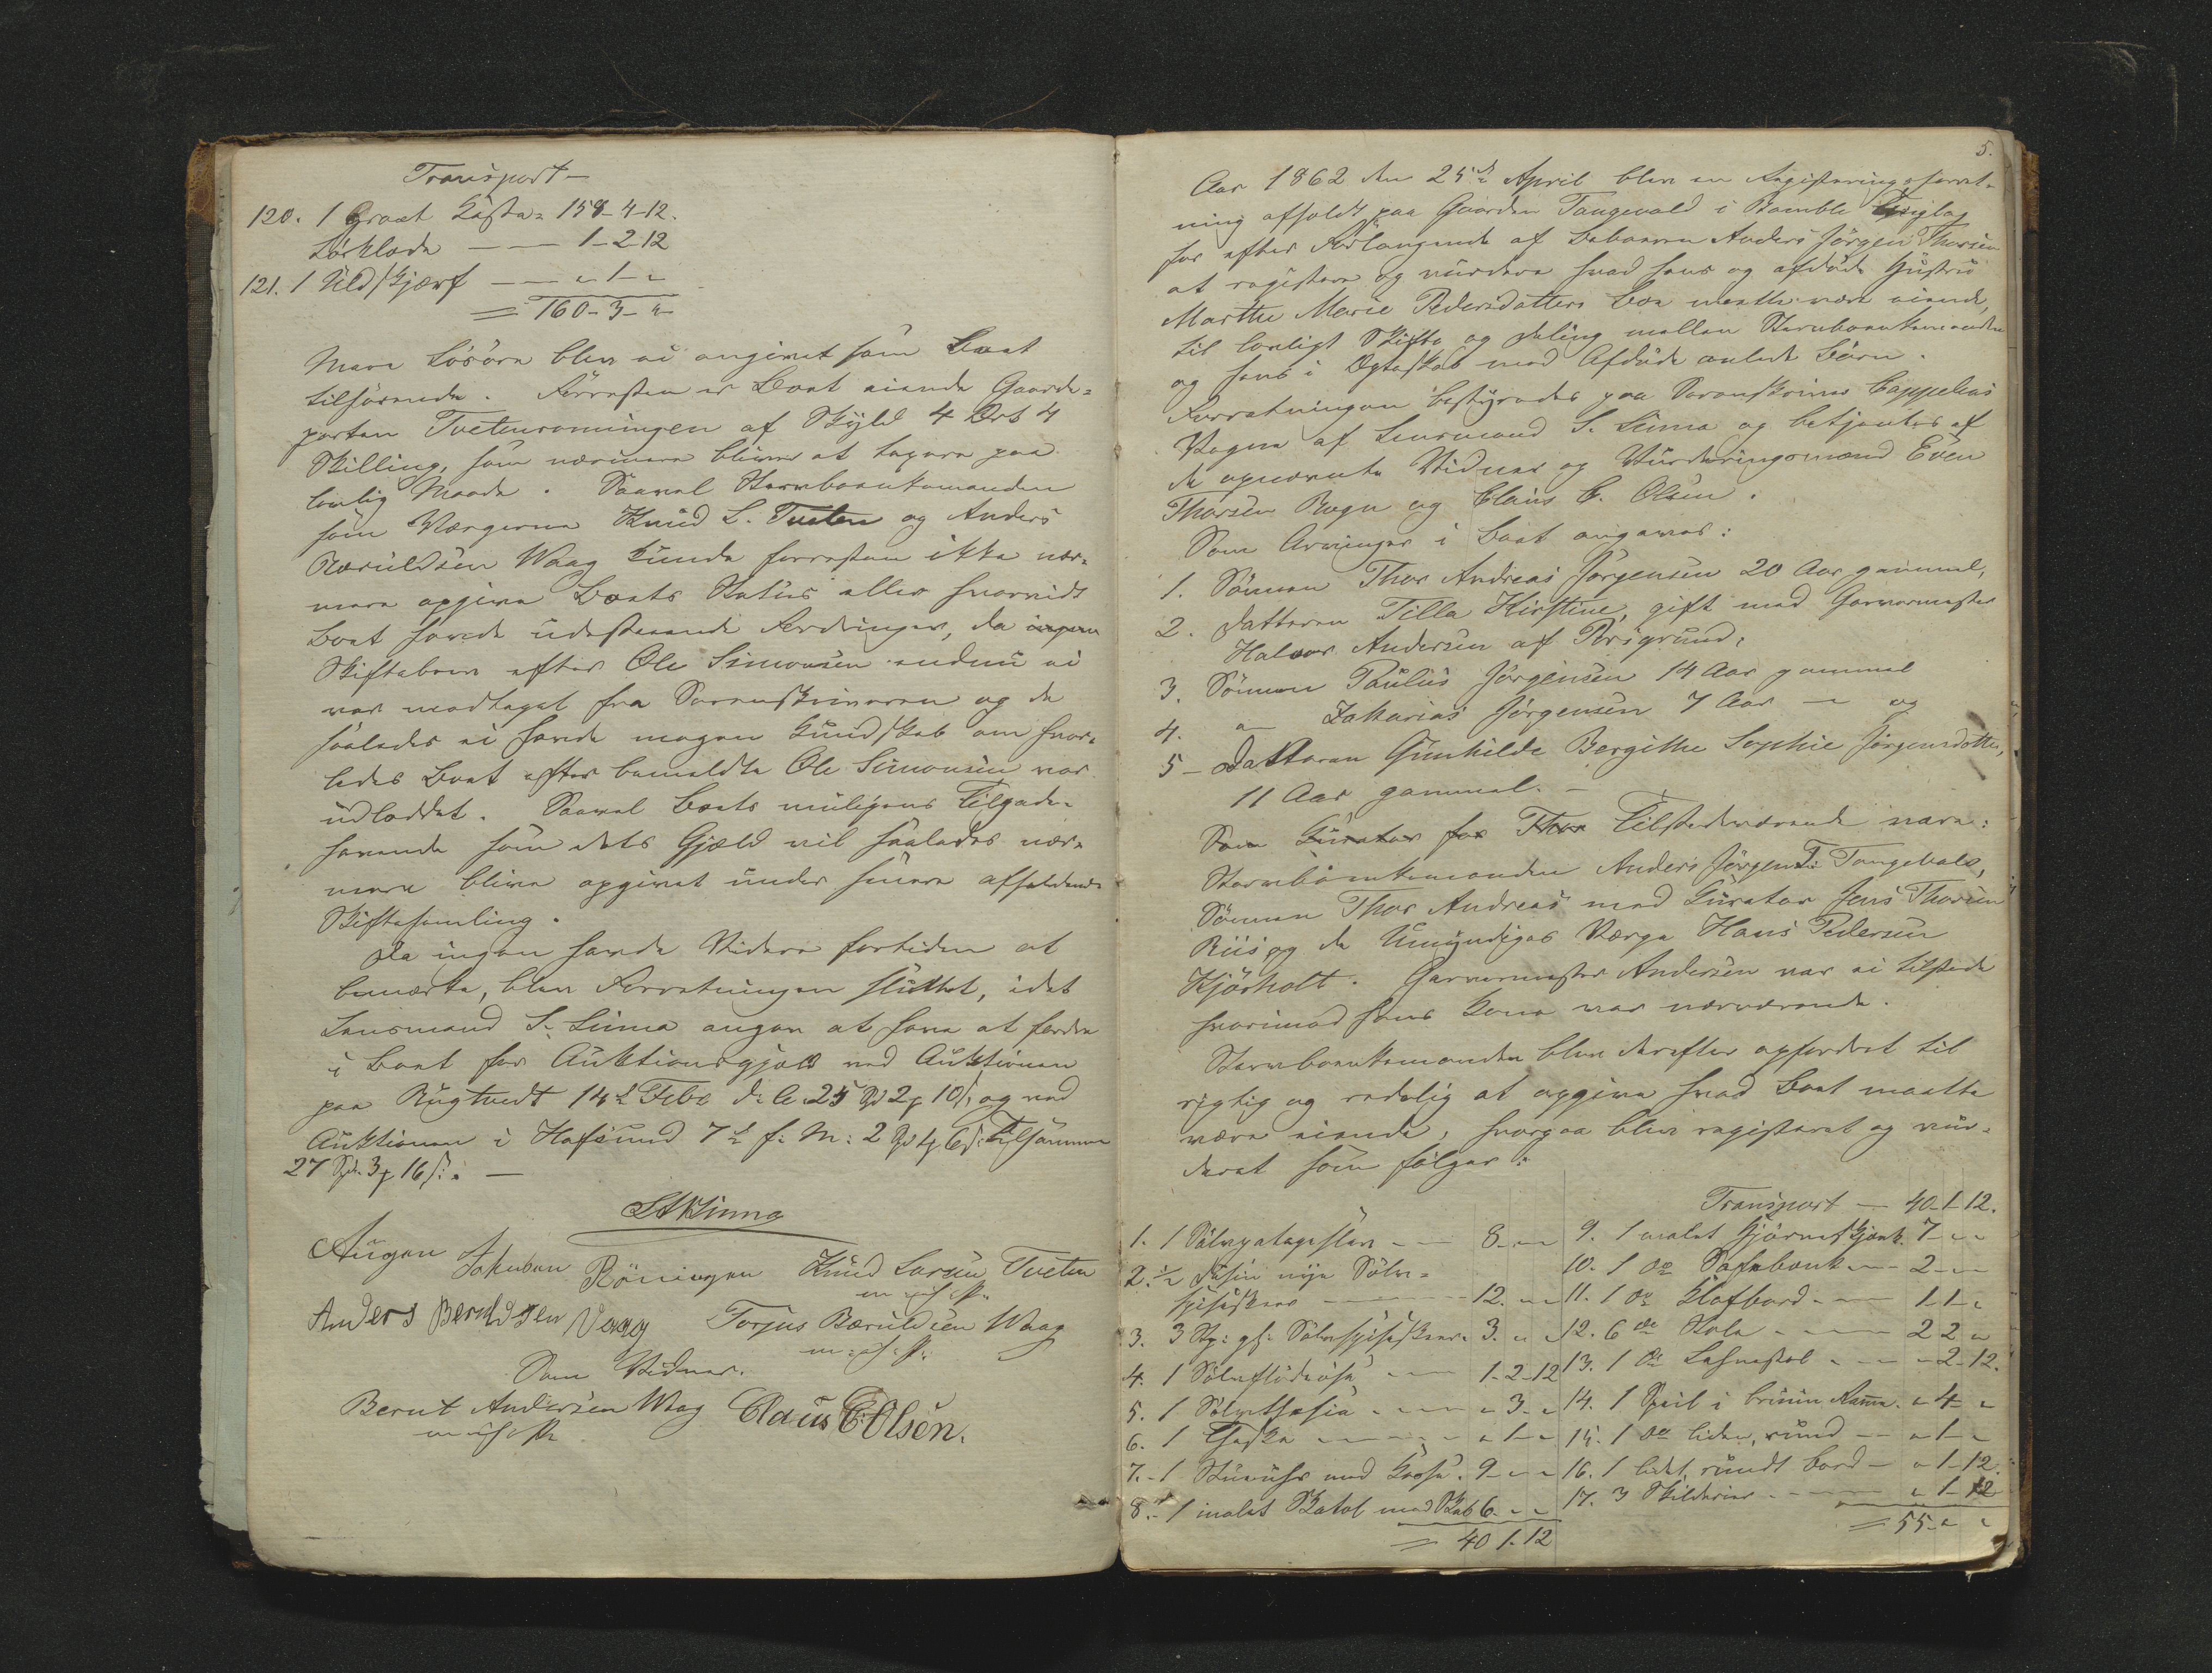 Transport —
120. 1 Graat Kista = 158-4-12.
Lörklæde —— 1-2-12
121. 1 Uldskjærf —— " 1 - "
= 160-3-"-
Mere Lösöre blev ei angivet som Boet
tilhörende. Forresten er Boet eiende Gaarde-
parten Tvetenrønningen af Skyld 4 Ort 4
Skilling, som nærmere bliver at taxere paa
lovlig Maade. Saavel Stervboenkemanden
som Værgerne Knud L. Tveten og Anders
Beruldsen Waag kunde forresten ikke nær-
mere opgive Boets Status eller hvorvidt
Boet havde udestaaende Fordringer, da
Skiftebrev efter Ole Simonsen endnu ei
var modtaget fra Sorenskriveren og de
saaledes ei havde nogen Kundskab om hvor-
ledes Boet efter bemeldte Ole Simonsen var
udloddet. Saavel Boets muligens Tilgode-
havende som dets Gjæld vil saaledes nær-
mere blive opgivet under senere afholdende
Skiftesamling.
Da ingen havde Videre fortiden at
bemærke, blev Forretningen sluttet, idet
Lensmand S. Linna angav at have at fordre
i Boet for Auktionsgjæld ved Auktionen
paa Rugtvedt 14de Febr d: A: 25 Spd 2 10 s og ved
Auktionen i Hafsund 7de f: M: 2 Spd 1 6 s: Tilsammen
27 Spd. 3 16 s: —
Linna
Augen Jakobsen Röningen Knud Larsen Tveten
m. p. P.
Anders Beruldsen Vaag Torjus Bæruldsen Waag
m: p: P:
Som Vidner.
Berut Andersen Waag Claus C Olsen.
m p P.
5.
Aar 1862 den 25de April blev en Registeringsforret-
ning afholdt paa Gaarden Tangevald i Bamble Thinglag
for efter Forlangende af Beboeren Anders Jörgen Thorsen
at registere og vurdere hvad hans og afdöde Hustru
Marthe Marie Pedersdatters Boe maatte være eiende,
til lovligt Skifte og Deling mellem Stervboenkemanden
og hans i Ægteskab med Afdöde avlede Börn.
Forretningen bestyredes paa Sorenskriver Cappelens
Vegne af Lensmand S. Linna og betjentes af
de opnævnte Vidner og Vurderingsmænd Even
Thorsen Rogn og Claus C. Olsen.
Som Arvinger i Boet angaves:
1. Sönnen Thor Andreas Jörgensen 20 Aar gammel,
2. Datteren Tilla Kirstine, gift med Garvermester
Halvor Andersen af Porsgrund;
3. Sönnen Paulus Jörgensen 14 Aar gammel
4. " Zakarias Jörgensen 7 Aar — og
5 - Datteren Gunhilde Bergithe Sophie Jörgensdatter,
11 Aar gammel. —
Som Curator for Thor Tilstedeværende vare:
Stervboenkemanden Anders Jörgen T. Tangevald,
Sönnen Thor Andreas med Curator Jens Thorsen
Riis og de Umyndiges Værge Hans Pedersen
Kjörholt. Garvermester Andersen var ei tilstede
hvorimod hans Kone var nærværende.
Stervboenkemanden blev derefter opfordret til
rigtig og redelig at opgive hvad Boet maatte
være eiende, hvorpaa blev registeret og vur-
deret som følger:
1. 1 Sölvpotageslev —— 8 - " - "
2. 1/2 Dusin nye Sölv-
spiseskeer —— 12. " - "
3. 3 Stk: gl: Sölvspiseskeer. 3. " - "
4. 1 Sölvflödeöse —— 1-2-12
5. 1 Sölvthesie —— " 3 - "
6. 1 Theske —— " 1 - "
7. - 1 Stueuhr med Kasse. 9 - " - "
8. - 1 malet Skatol med Skab 6. " - "
= 40 1-12
Transport — 40-1-12.
9. 1 malet Hjörneskjænk. 7 - " "
10. 1 do Sofabænk —— 2 - " -
11. 1 do Klafbord —— 1-1-"
12. 6 do Stole —— 2 2 "
13. 1 do Lehnestol —— " 2-12.
14. 1 Speil i bruun Ramme. " 4 "
15. 1 do liden, rund —— " 1 - "
16. 1 lidet, rundt bord — " 1-12
17. 3 Skilderier —— " 1-12
= 55 " "